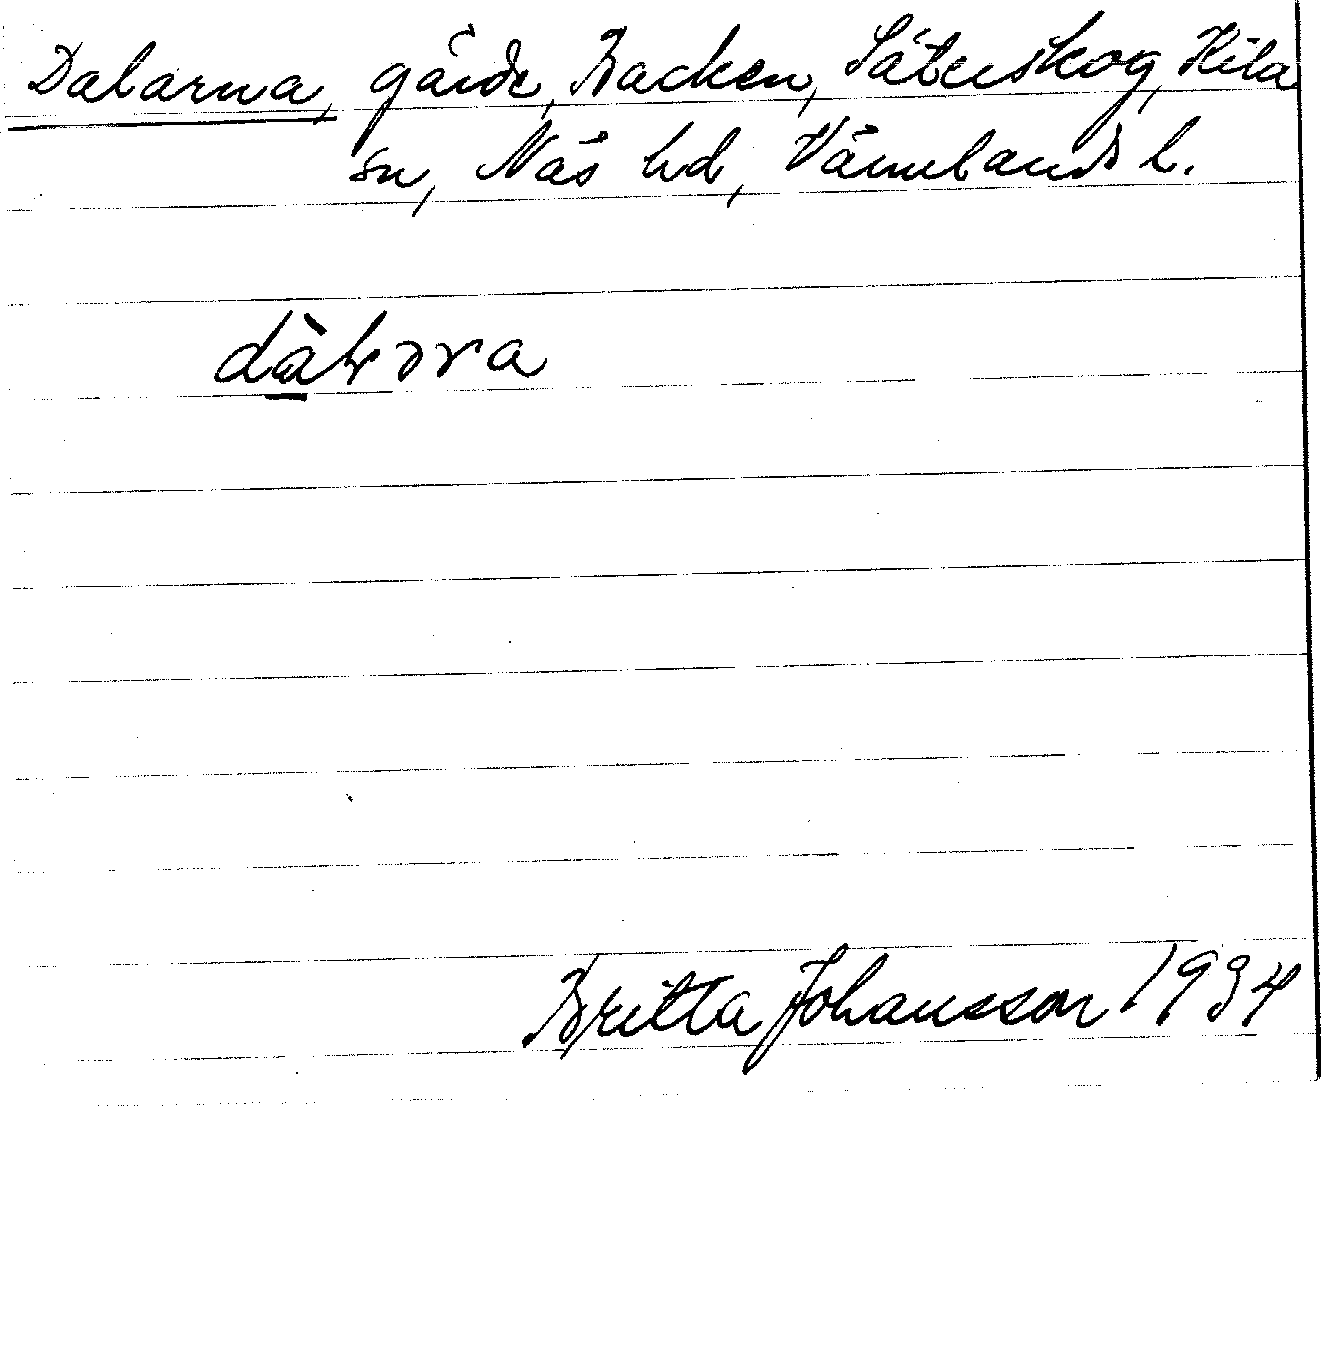 Dalarna, gärde, Backen, Säterskog, Kila
sn, Näs hd, Värmlands l.
Britta Johansson 1934